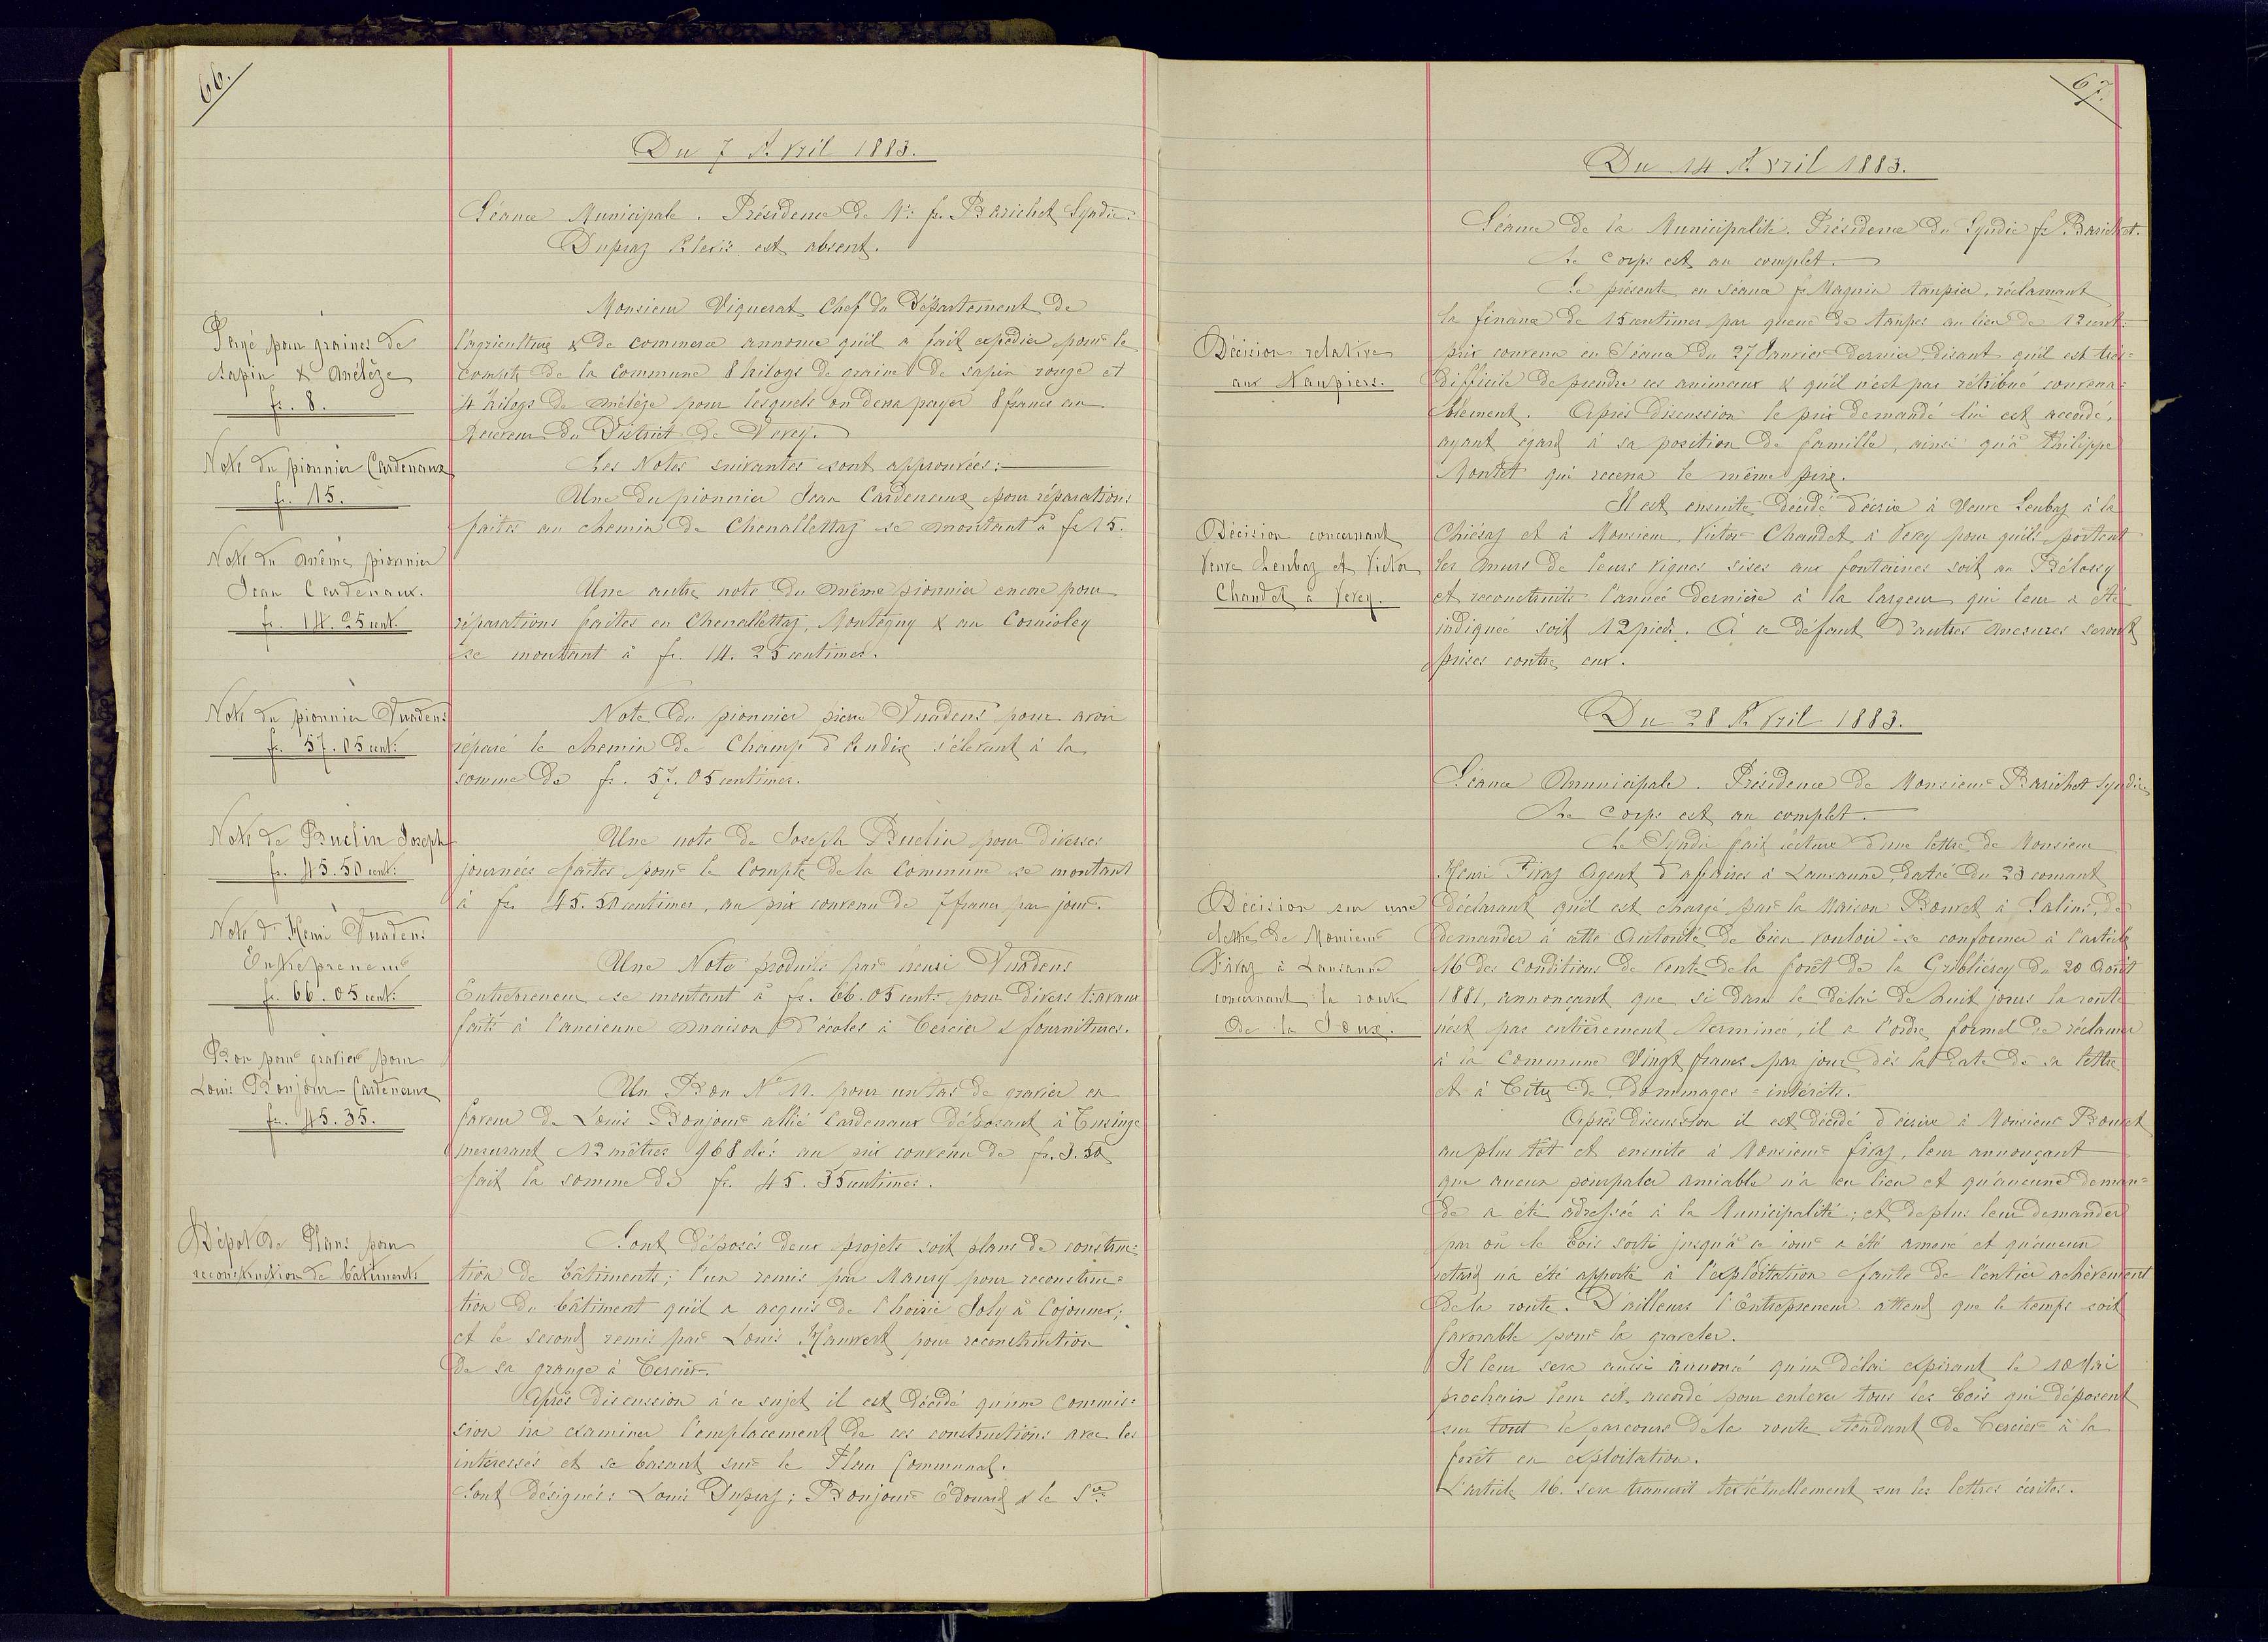 66.
Du 7 Avril 1883.
Séance Municipale. Présidence de Mr. fs. Barichet Syndic.
Dupraz Alexis est absent.
Payé pour graines de
sapin & mélèze
fr. 8.
Monsieur Viquerat Chef du Département de
l'agriculture & de commerce annonce qu'il a fait expédier pour le
compte de la Commune 8 kilogs de graine de sapin rouge et
4 kilogs de mélèze pour lesquels on devra payer 8 francs au
Receveur du District de Vevey.
Les Notes suivantes sont approuvées:
Note du pionnier Cardenaux
fr. 15.
Une du pionnier Jean Cardenaux pour réparations
faites au chemin de Chenallettaz se montant à fr 15.
Note du même pionnier
Jean Cardenaux.
fr. 14. 25 cent.
Une autre note du même pionnier encore pour
réparations faites en Chenallettaz, Montégny & au Cornioley
se montant à fr. 14. 25 centimes.
Note du pionnier Vuadens
fr. 57. 05 cent:
Note du pionnier pierre Vuadens pour avoir
réparé le chemin de Champ d'Andix s'élevant à la
somme de fr. 57. 05 centimes.
Note de Buclin Joseph
fr. 45. 50 cent:
Une note de Joseph Buclin pour diverses
journées faites pour le Compte de la Commune se montant
à fr. 45. 50 centimes, au prix convenu de 7 francs par jour.
Note d' Henri Vuadens
Entrepreneur
fr. 66. 05 cent:
Une Note produite par henri Vuadens
Entrepreneur se montant à fr. 66. 05 cent: pour divers travaux
faits à l'ancienne maison d'écoles à Cercier & fournitures.
Bon pour gravier pour
Louis Bonjour-Cardenaux
fr. 45. 35.
Un Bon No 11. pour un tas de gravier en
faveur de Louis Bonjour allié Cardenaux déposant à Tusinge
mesurant 12 mètres 968 dés: au prix convenu de fr. 3. 50
fait la somme de fr. 45. 35 centimes.
Dépot de Plans pour
reconstruction de bâtiments
Sont déposés deux projets soit plans de construc=
tion de bâtiments; l'un remis par Maury pour reconstruc=
tion du bâtiment qu'il a acquis de l'hoirie Joly à Cojonnex;
et le second remis par Louis Mauvert pour reconstruction
de sa grange à Cercier.
Après discussion à ce sujet il est décidé qu'une Commis=
sion ira examiner l'emplacement de ces constructions avec les
intéressés et se basant sur le Plan Communal.
Sont désignés: Louis Dupraz; Bonjour Edouard & le Sre
67.
Du 14 Avril 1883.
Séance de la Municipalité. Présidence du Syndic fs. Barichet.
Le Corps est au complet.
Décision relative
aux Taupiers.
Se présente en séance fs Magnin taupier, réclamant
la finance de 15 centimes par queue de taupes au lieu de 12 cent:
prix convenu en Séance du 27 Janvier dernier, disant qu'il est très=
difficile de prendre ces animaux & qu'il n'est pas rétribué convena=
blement. Après discussion le prix demandé lui est accordé,
ayant égard à sa position de famille, ainsi qu'à Philippe
Montet qui recevra le même prix.
Décision concernant
Veuve Leubaz et Victor
Chaudet à Vevey.
Il est ensuite décidé d'écrire à Veuve Leubaz à la
Chiésaz et à Monsieur Victor Chaudet à Vevey pour qu'ils portent
les murs de leurs vignes sises aux fontaines soit au Bélossy
et reconstruits l'année dernière à la largeur qui leur a été
indiquée soit 12 pieds. A ce défaut d'autres mesures seront
prises contre eux.
Du 28 Avril 1883.
Séance Municipale. Présidence de Monsieur Barichet Syndic
Le Corps est au complet.
Décision sur une
lettre de Monsieur
Fivaz à Lausanne
concernant la route
de la Joux.
Le Syndic fait lecture d'une lettre de Monsieur
Henri Fivaz Agent d'affaires à Lausanne, datée du 23 courant
déclarant qu'il est chargé par la Maison Bouvet à Salins, de
demander à cette Autorité de bien vouloir se conformer à l'article
16 des Conditions de vente de la forêt de la Gribliérey du 20 Août
1881, annonçant que si dans le délai de huit jours la route
n'est pas entièrement terminée, il a l'ordre formel de réclamer
à la Commune Vingt francs par jour dès la date de sa lettre
et à titre de Dommages-intérêts.
Après discussion il est décidé d'écrire à Monsieur Bouvet
au plus tôt et ensuite à Monsieur fivaz, leur annonçant
que aucun pourpaler amiable n'a eu lieu et qu'aucune deman=
de a été adressée à la Municipalité; et deplus leur demander
par où le bois sorti jusqu'à ce jour a été amené et qu'aucun
retard n'a été apporté à l'exploitation faute de l'entier achèvement
de la route. D'ailleurs l'Entrepreneur attend que le temps soit
favorable pour la graveler.
Il leur sera aussi annoncé qu'un délai expirant le 10 Mai
prochain leur est accordé pour enlever tous les bois qui déposent
sur tout le parcours de la route tendant de Cercier à la
forêt en exploitation.
L'article 16. sera transcrit textétuellement sur les lettres écrites.